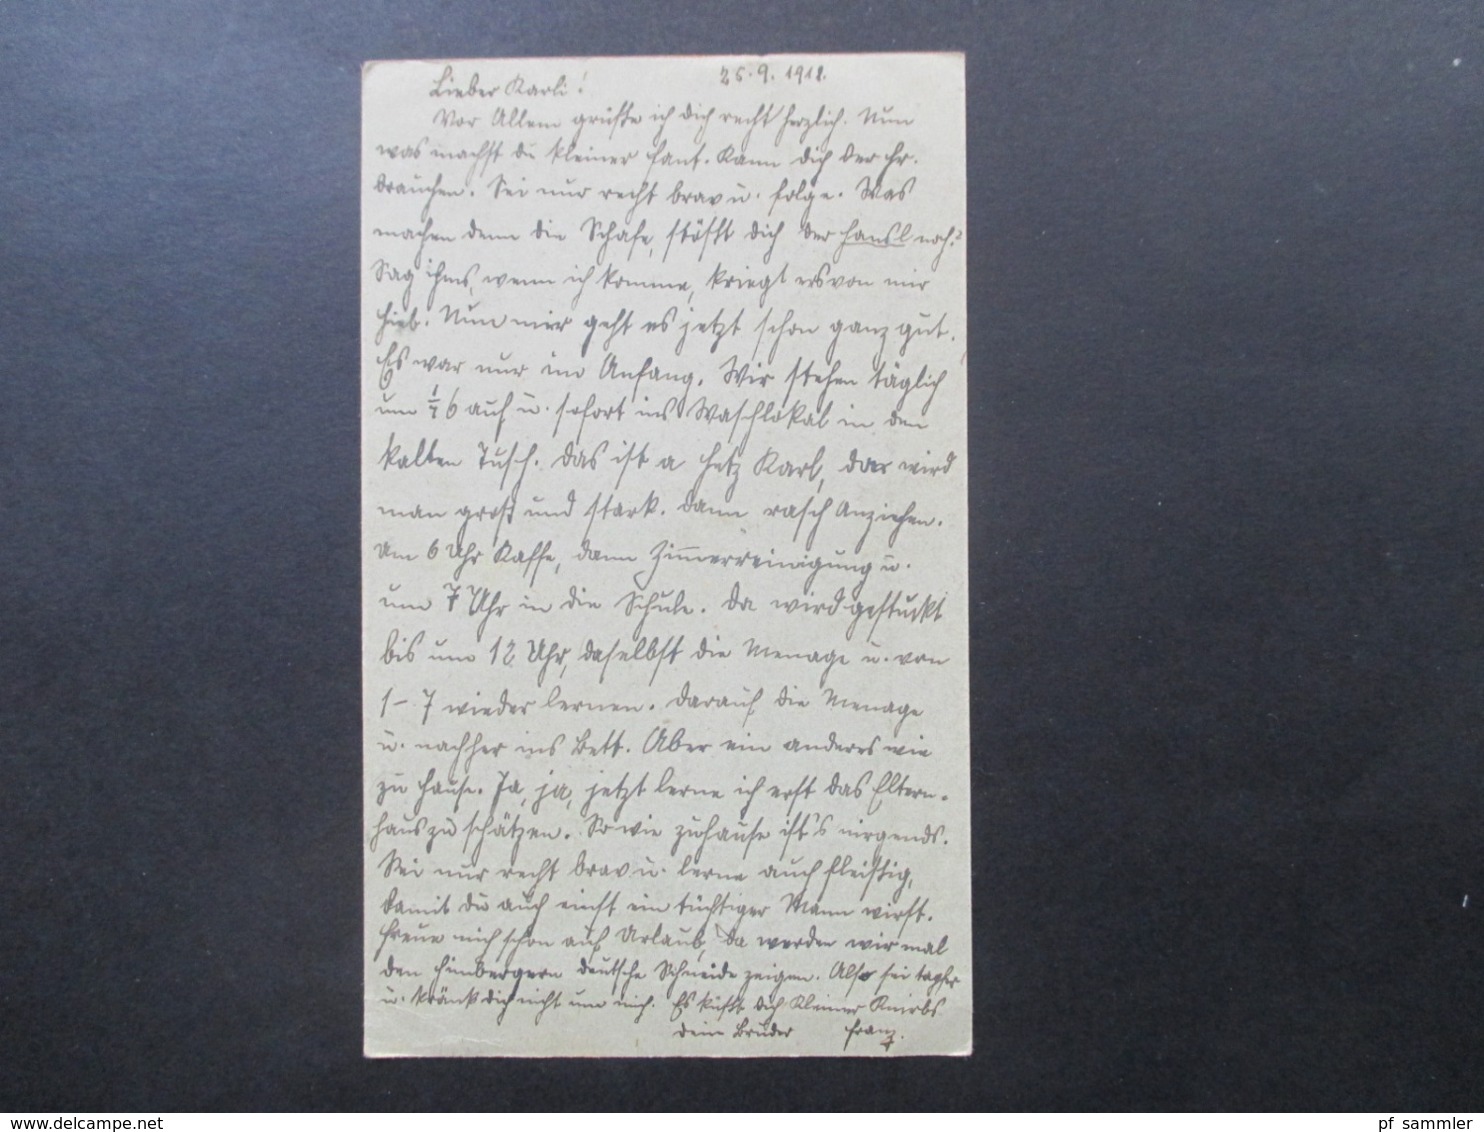 25.9.1918.
Lieber Karli!
Vor Allem grüße ich dich recht herzlich. Nun
was machst du kleiner Fant. Kann dich der Hr.
brauchen. Sei nur recht brav u. folge. Was
machen denn die Schafe, stößt dich der Hansl noch?
Sag ihms, wenn ich komme, kriegt ers von mir
Hieb. Nun mir geht es jetzt schon ganz gut.
Es war nur im Anfang. Wir stehen täglich
um 6 auf u. sofort ins Waschlokal in den
kalten Tusch. Das ist a Hetz Karl, da wird
man groß und stark. Dann rasch Anziehen.
Um 6 Uhr Kaffe, dann Zimmerreinigung u.
um 7 Uhr in die Schule. Da wird gestuckt
bis um 12 Uhr, daselbst die Menage u. von
1–7 wieder lernen. Darauf die Menage
u. nachher ins Bett. Aber ein anderes wie
zu Hause. Ja, ja, jetzt lerne ich erst das Eltern-
haus zu schätzen. So wie zuhause ist's nirgends.
Sei nur recht brav u. lerne auch fleißig,
damit du auch einst ein tüchtiger Mann wirst.
Freue mich schon auf Urlaub, da werden wir mal
den Himbergern deutsche Schneide zeigen. Also sei tapfer
u. kränk dich nicht um mich. Es küßt dich kleiner Knirbs
dein Bruder Franz.
pf sammler
www.delcampe.net